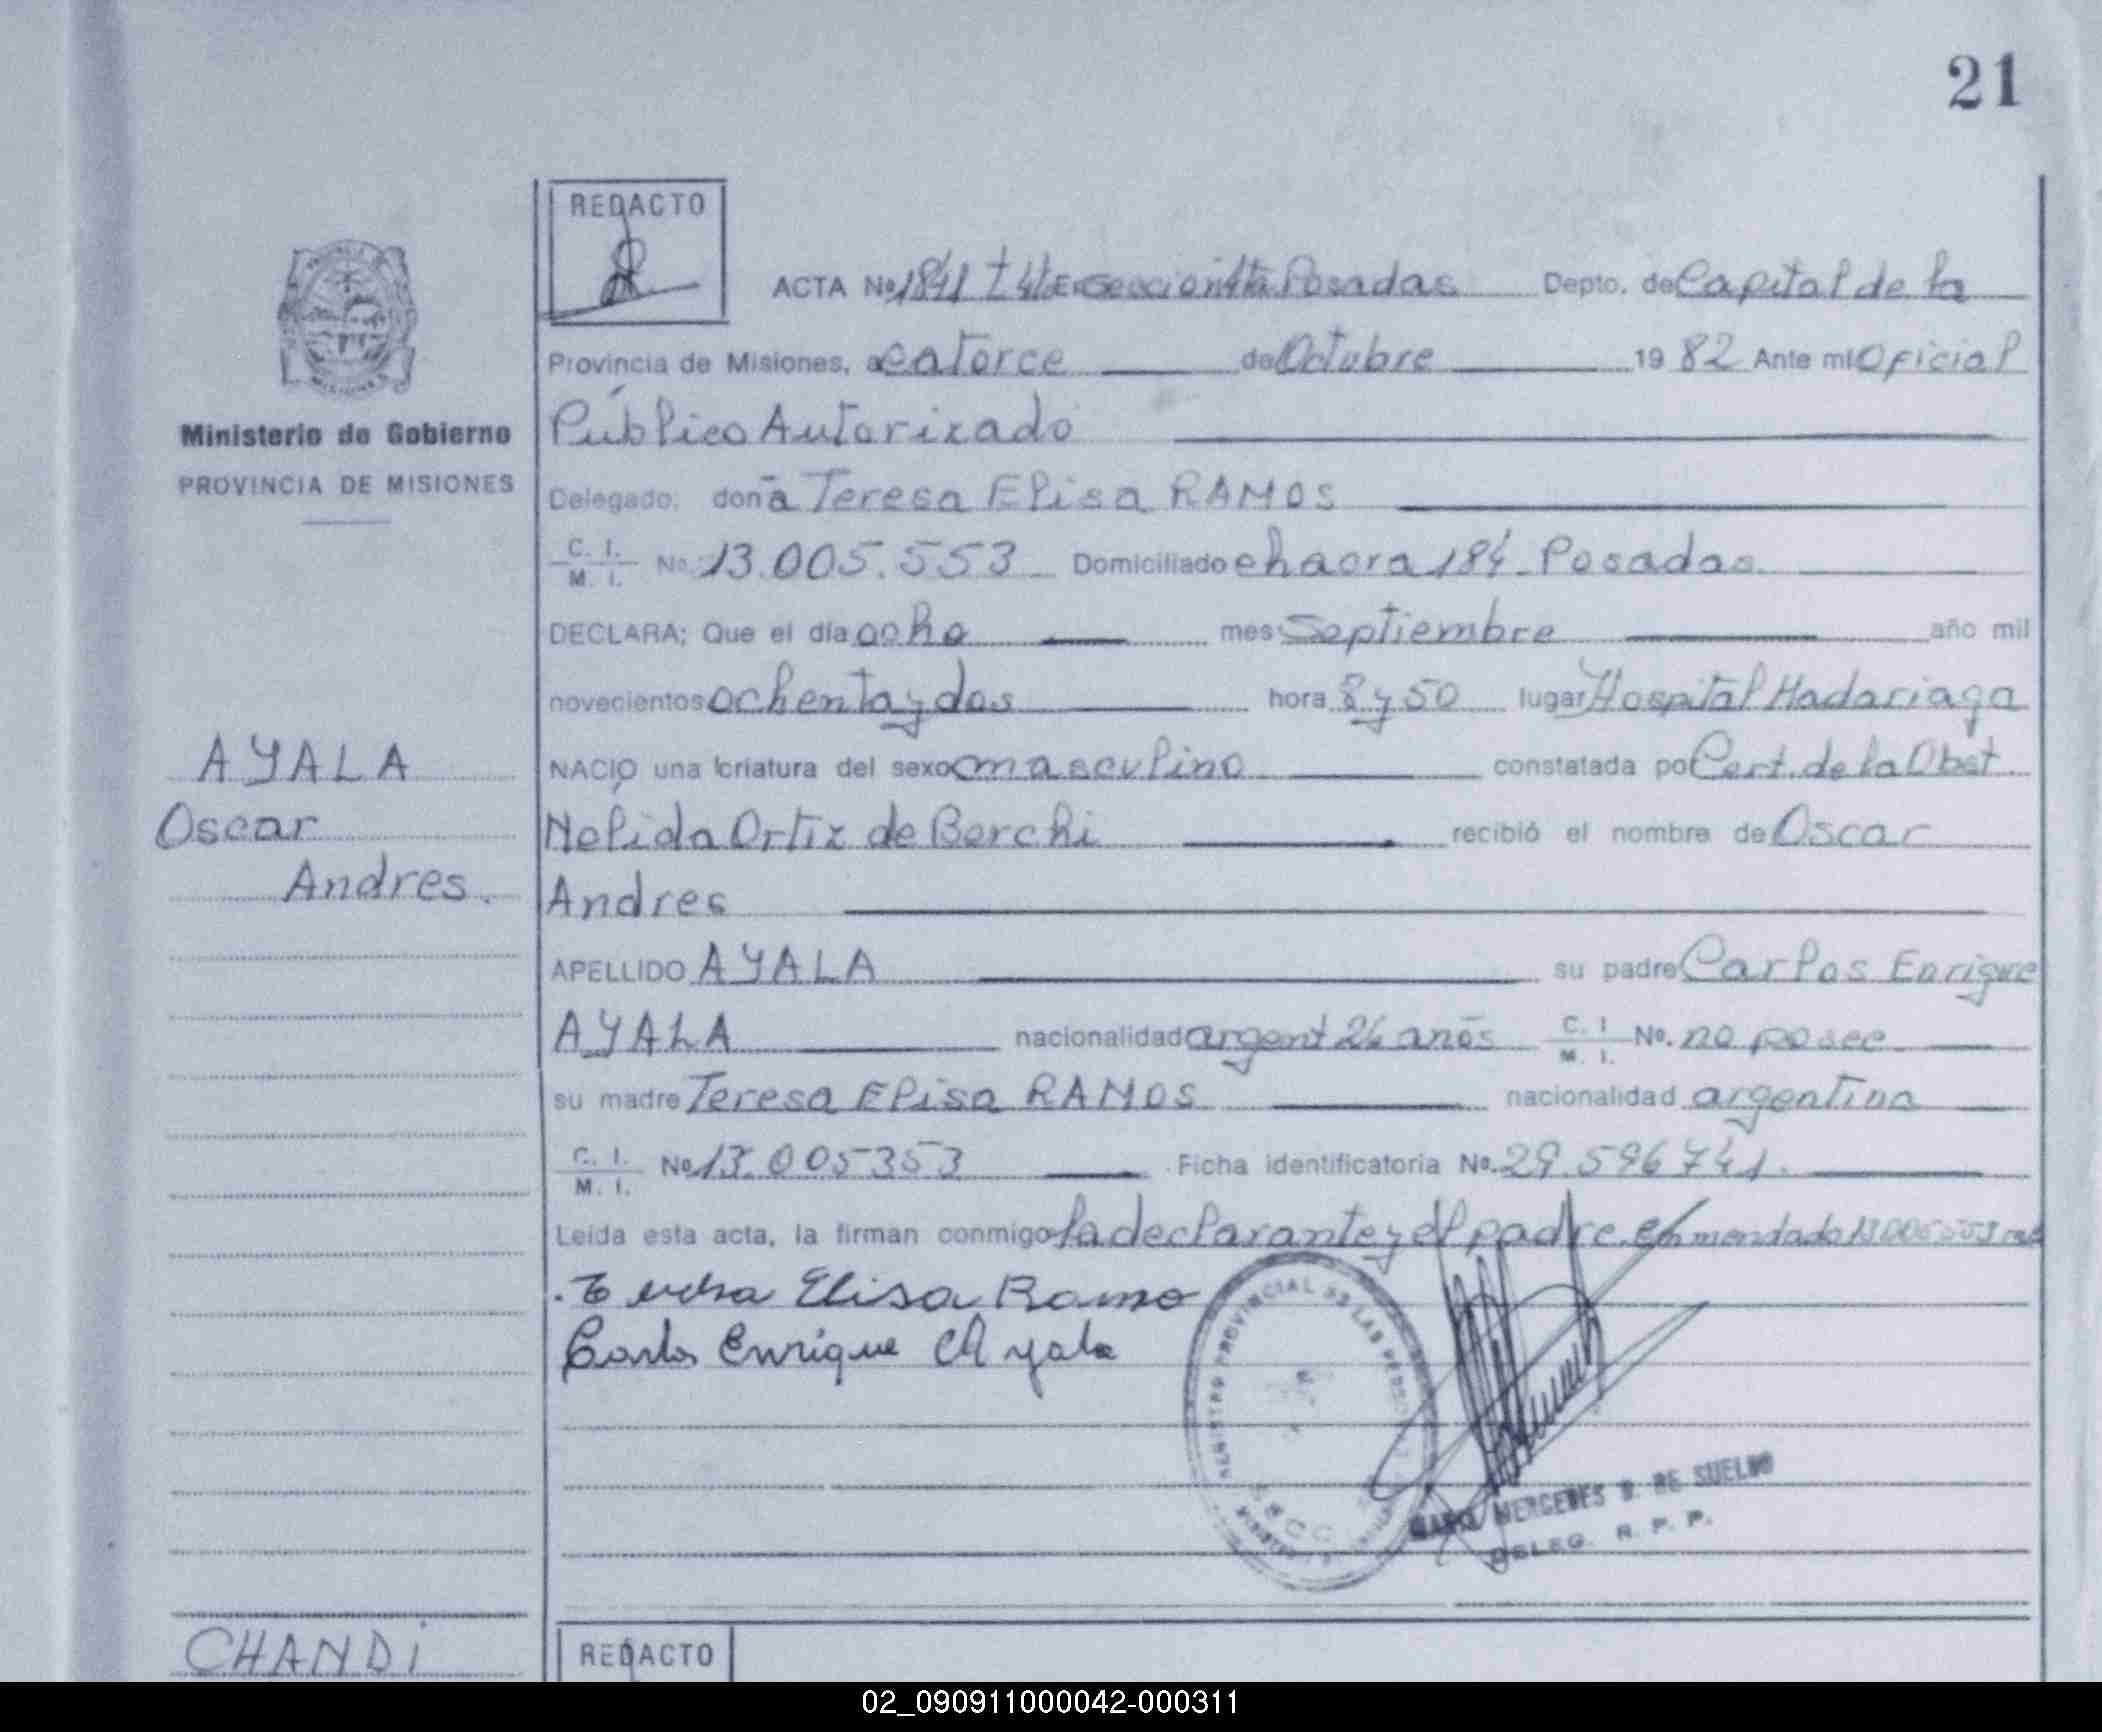 21
REDACTO
ACTA No 1841 Posadas Depto. de Capital de la
Provincia de Misiones, a catorce de Octubre 1982 Ante mi Oficial
Público Autorizado
Ministerio de Gobierno
PROVINCIA DE MISIONES
Delegado; doña Teresa Elisa RAMOS
C. I. M. I. No. 13.005.553 Domiciliado chacra 184 Posadas
DECLARA; Que el día ocho mes Septiembre año mil
novecientos ochenta y dos hora 8 y 50 lugar Hospital Madariaga
NACIO una criatura del sexo masculino constatada po Cert. de la Obst.
Nelida Ortiz de Borchi recibió el nombre de Oscar
Andres
AYALA
Oscar
Andres.
APELLIDO AYALA su padre Carlos Enrique
AYALA nacionalidad argent 26 años C. I M. I. No. no posee
su madre Teresa Elisa RAMOS nacionalidad argentina
C. I. M. I. No 13.005353 Ficha identificatoria No. 29.596741.
Leída esta acta, la firman conmigo la declarante y el padre. enmendado 13005553
Elisa Ramo
Carlos Enrique Ayala
REGISTRO PROVINCIAL DE LAS
MERCEDES D. DE SUELDO
DELEG. R. P. P.
CHANDI
REDACTO
02_090911000042-000311